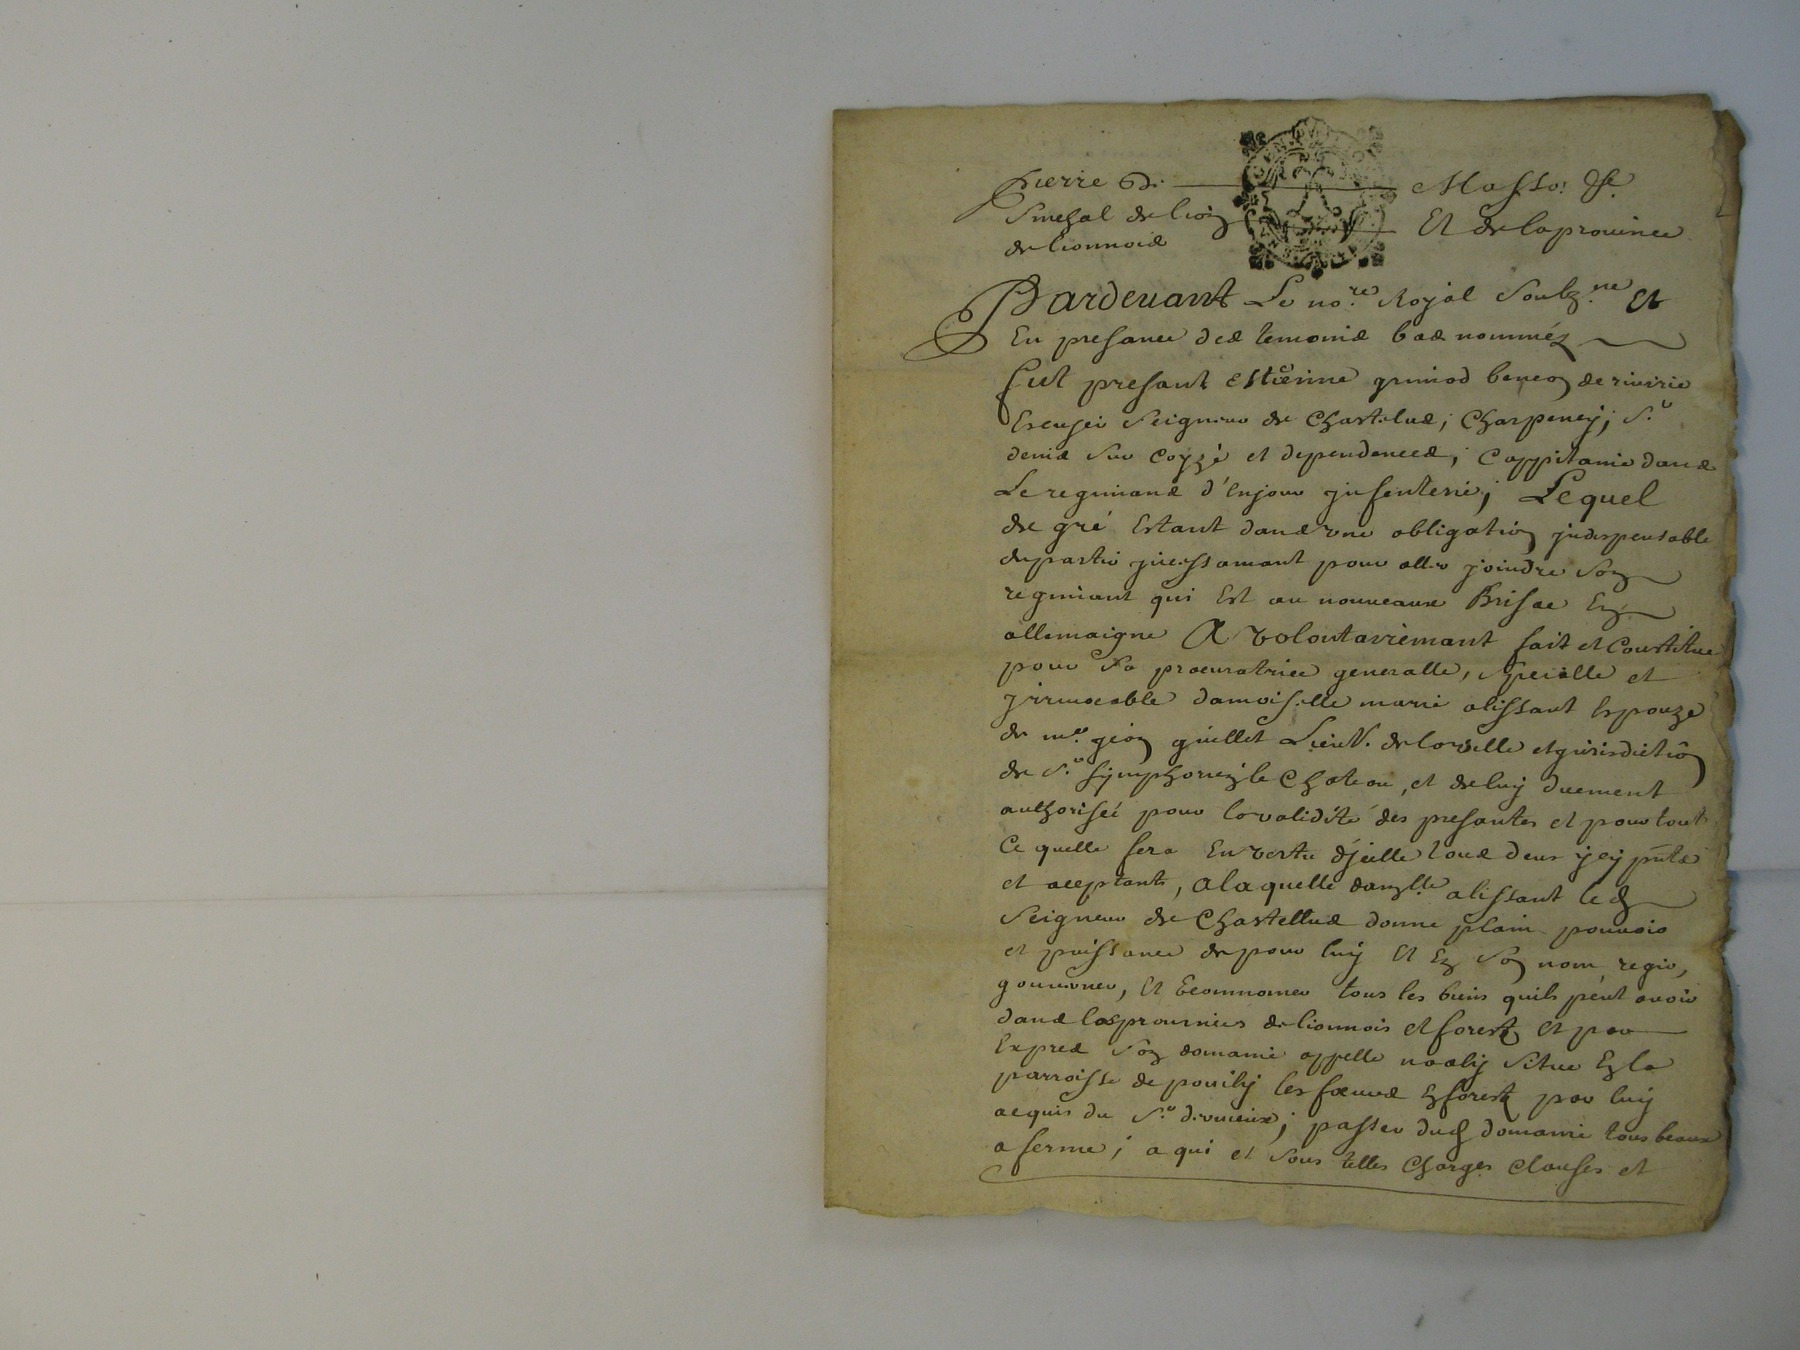 Pierre de Masso Esc.
Senechal de lion Et de la prouince
de lionnois
Pardeuant Le no.re Royal soubz.né Et
En presance des temoins bas nommés
fut presant Estienne grimod beneon de riuirie
Escuyer Seigneur de Chastelus; Charpeney; S.t
denis sur Coyze et dependences; Cappitaine dans
Le regimans d'enjou jnfenterie; Lequel
de gré Estant dans vne obligation jndispensable
de partir jncessamant pour aller joindre son
regimant qui Est au nouueaux Brisac En
allemaigne A volontairemant fait et Constitue
pour sa procuratrice generalle, specialle et
jrreuocable damoiselle marie alissant Espouze
de m.e jean guillet Lieut. de la ville et jurisdiction
de S.t Symphorien le Chateau, et de luy duement
authorisée pour la validité des presantes et pour tout
Ce quelle fera En vertu d'jcelle tous deux jcy pñts
et aceptants, a laquelle damzlle alissant led
Seigneur de Chastellus donne plain pouuoir
et puissance de pour luy Et En son nom regir,
gouuerner, Et Economner tous les biens quils peut auoir
dans les prouinces de lionnois et forest Et par
Expres son domaine appelle situe En la
parroisse de pouilly les feurs En forest par luy
acquis du S.r ; passer dud domaine tous beaux
a ferme; a qui et sous telles Charges Clauses et